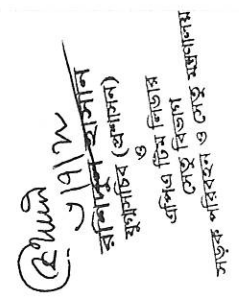 রশিদুল হাসান
যুগ্মসচিব (প্রশাসন)
ও
এপিএ টিম লিডার
সেতু বিভাগ
সড়ক পরিবহন ও সেতু মন্ত্রণালয়